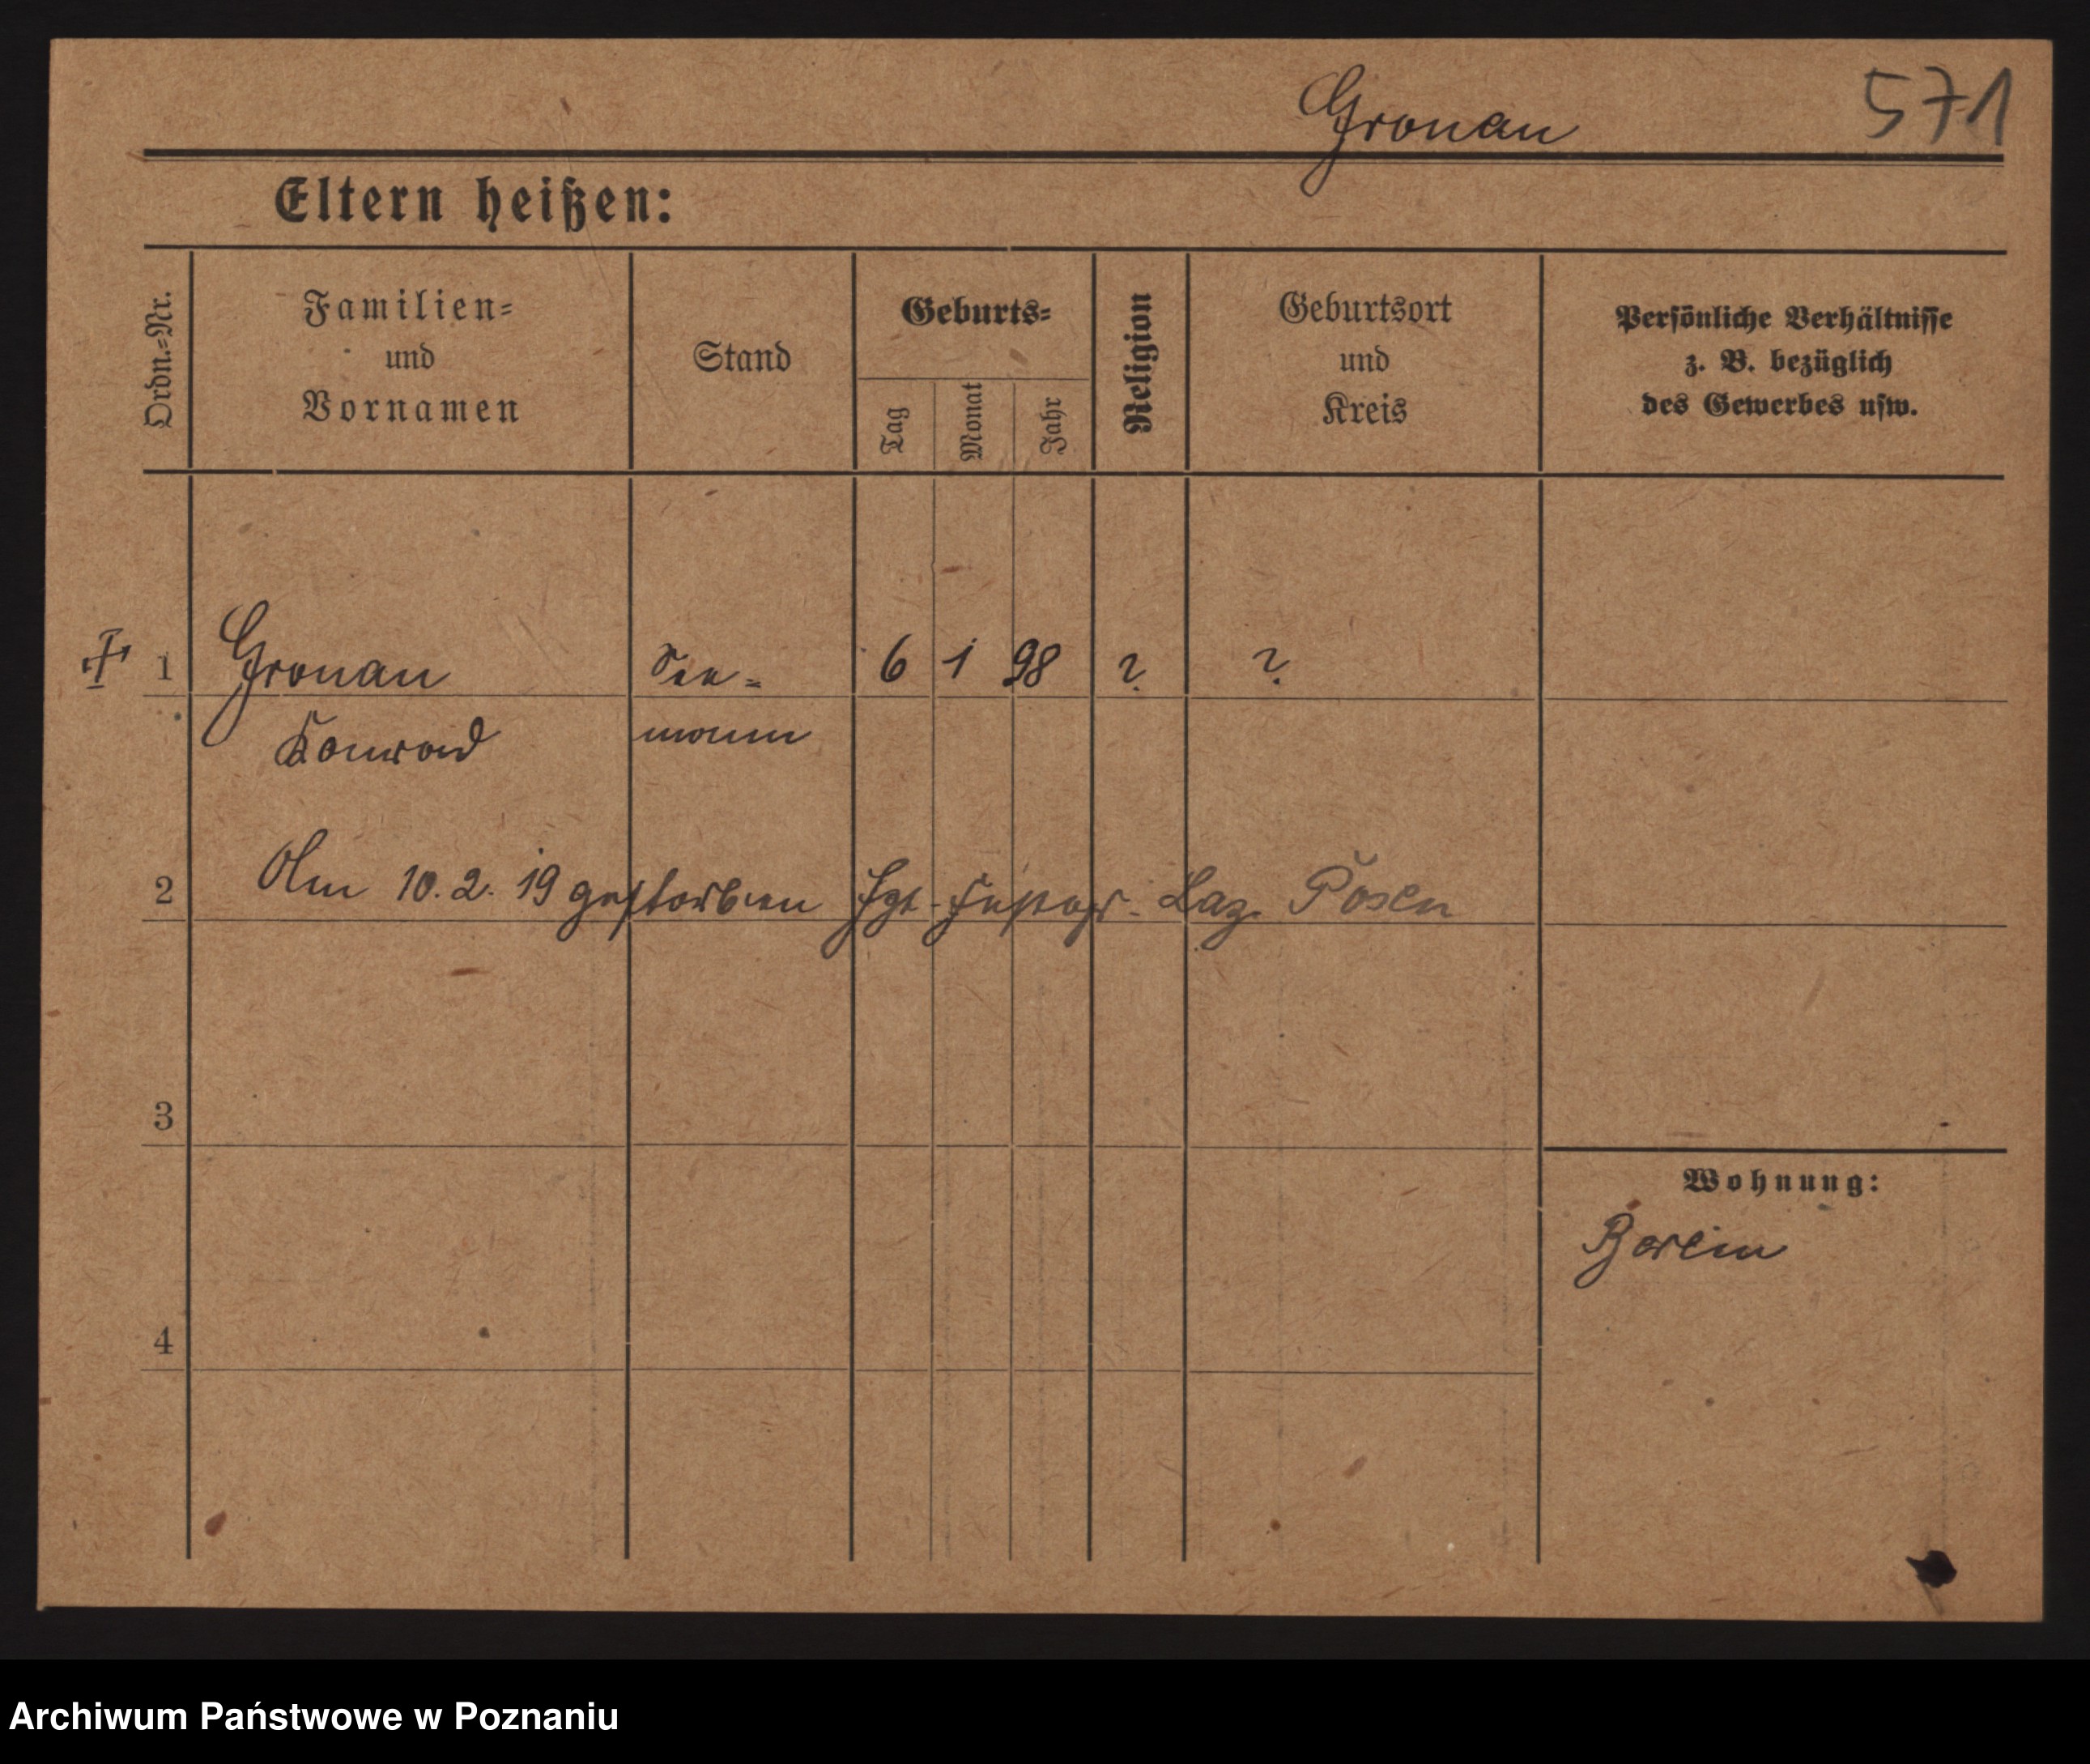 Gronau 571
Eltern heißen:
Ordn.-Nr.
Familien-
und
Vornamen
Stand
Geburts-
Tag
Monat
Jahr
Religion
Geburtsort
und
Kreis
Persönliche Verhältnisse
z. B. bezüglich
des Gewerbes usw.
1 Gronau See- 6 1 98 ? ?
Konrad mann
2 Am 10. 2. 19 gestorben Laz. Posen
3
Wohnung:
Berlin
4
Archiwum Państwowe w Poznaniu